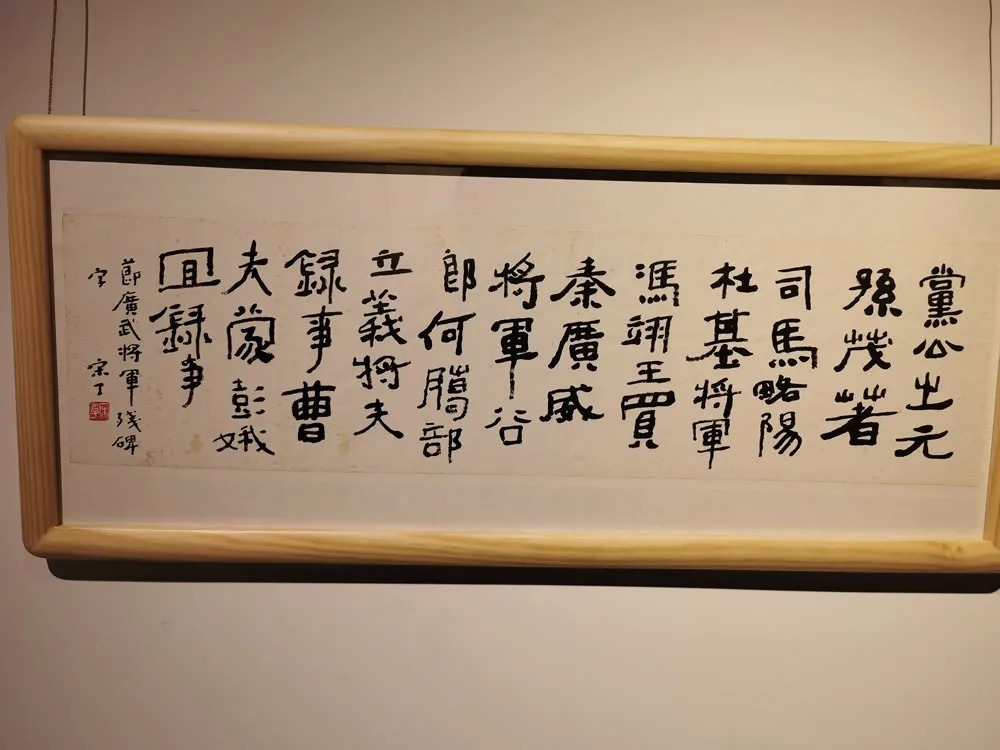 黨公㞢元
孫茂著
司馬略陽
杜基將軍
馮翊王買
秦廣威
將軍谷
郎何騰部
立義將夫
録事曹
夫蒙彭娥
囬録事
節廣武將軍殘碑
字 宗丁